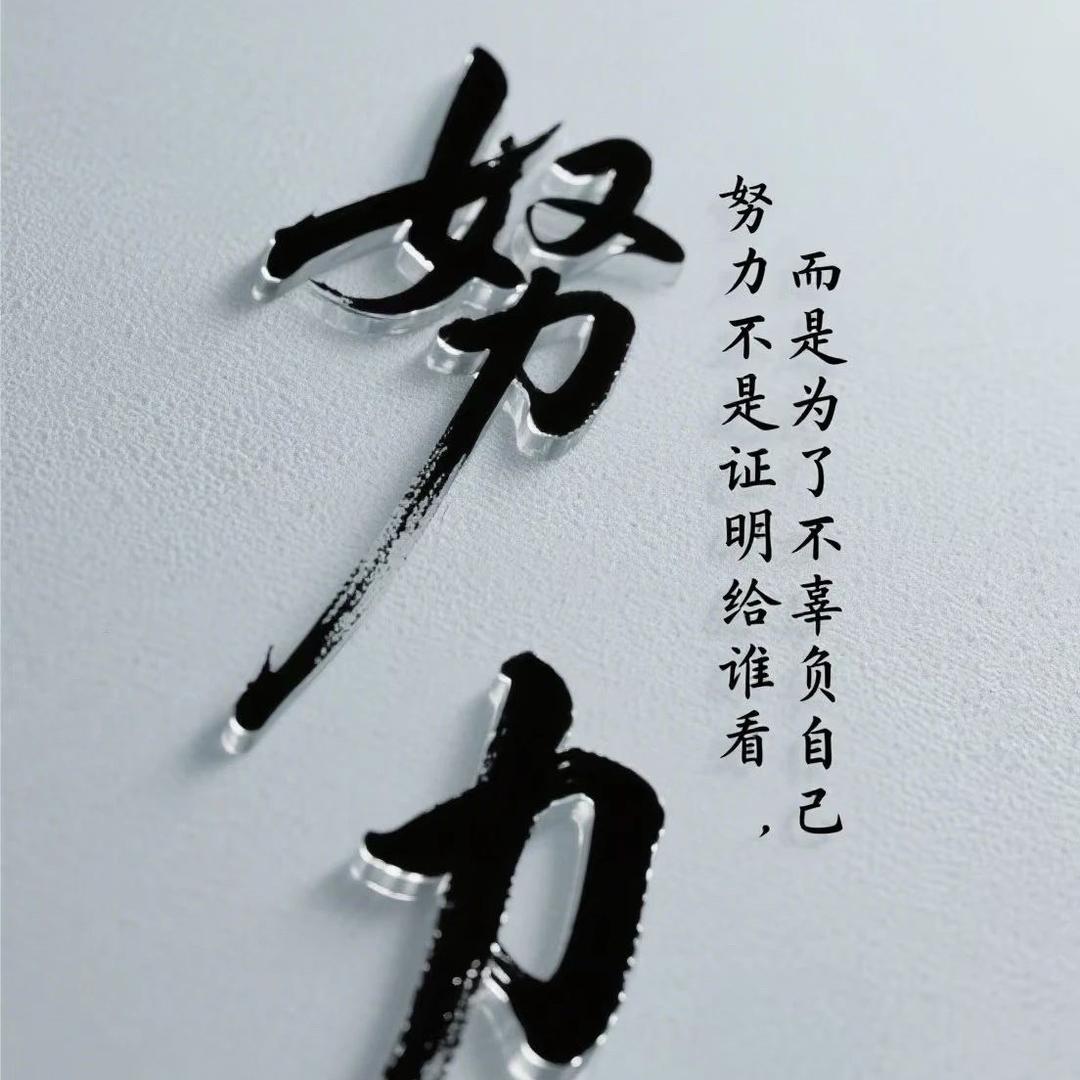 努力
努力不是证明给谁看，
而是为了不辜负自己